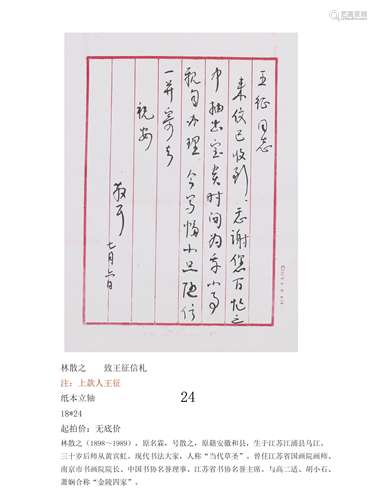 博宝拍卖
王征同志
来信已收到，志谢您百忙之
中抽出宝贵时间为弄小事
一并寄去
祝安
散耳
七月六日
林散之 致王征信札
注：上款人王征
纸本立轴
24
18*24
起拍价：无底价
林散之（1898～1989），原名霖，号散之，原籍安徽和县，生于江苏江浦县乌江。
三十岁后师从黄宾虹。现代书法大家，人称“当代草圣”。曾任江苏省国画院画师、
南京市书画院院长、中国书协名誉理事、江苏省书协名誉主席。与高二适、胡小石、
萧娴合称“金陵四家”。